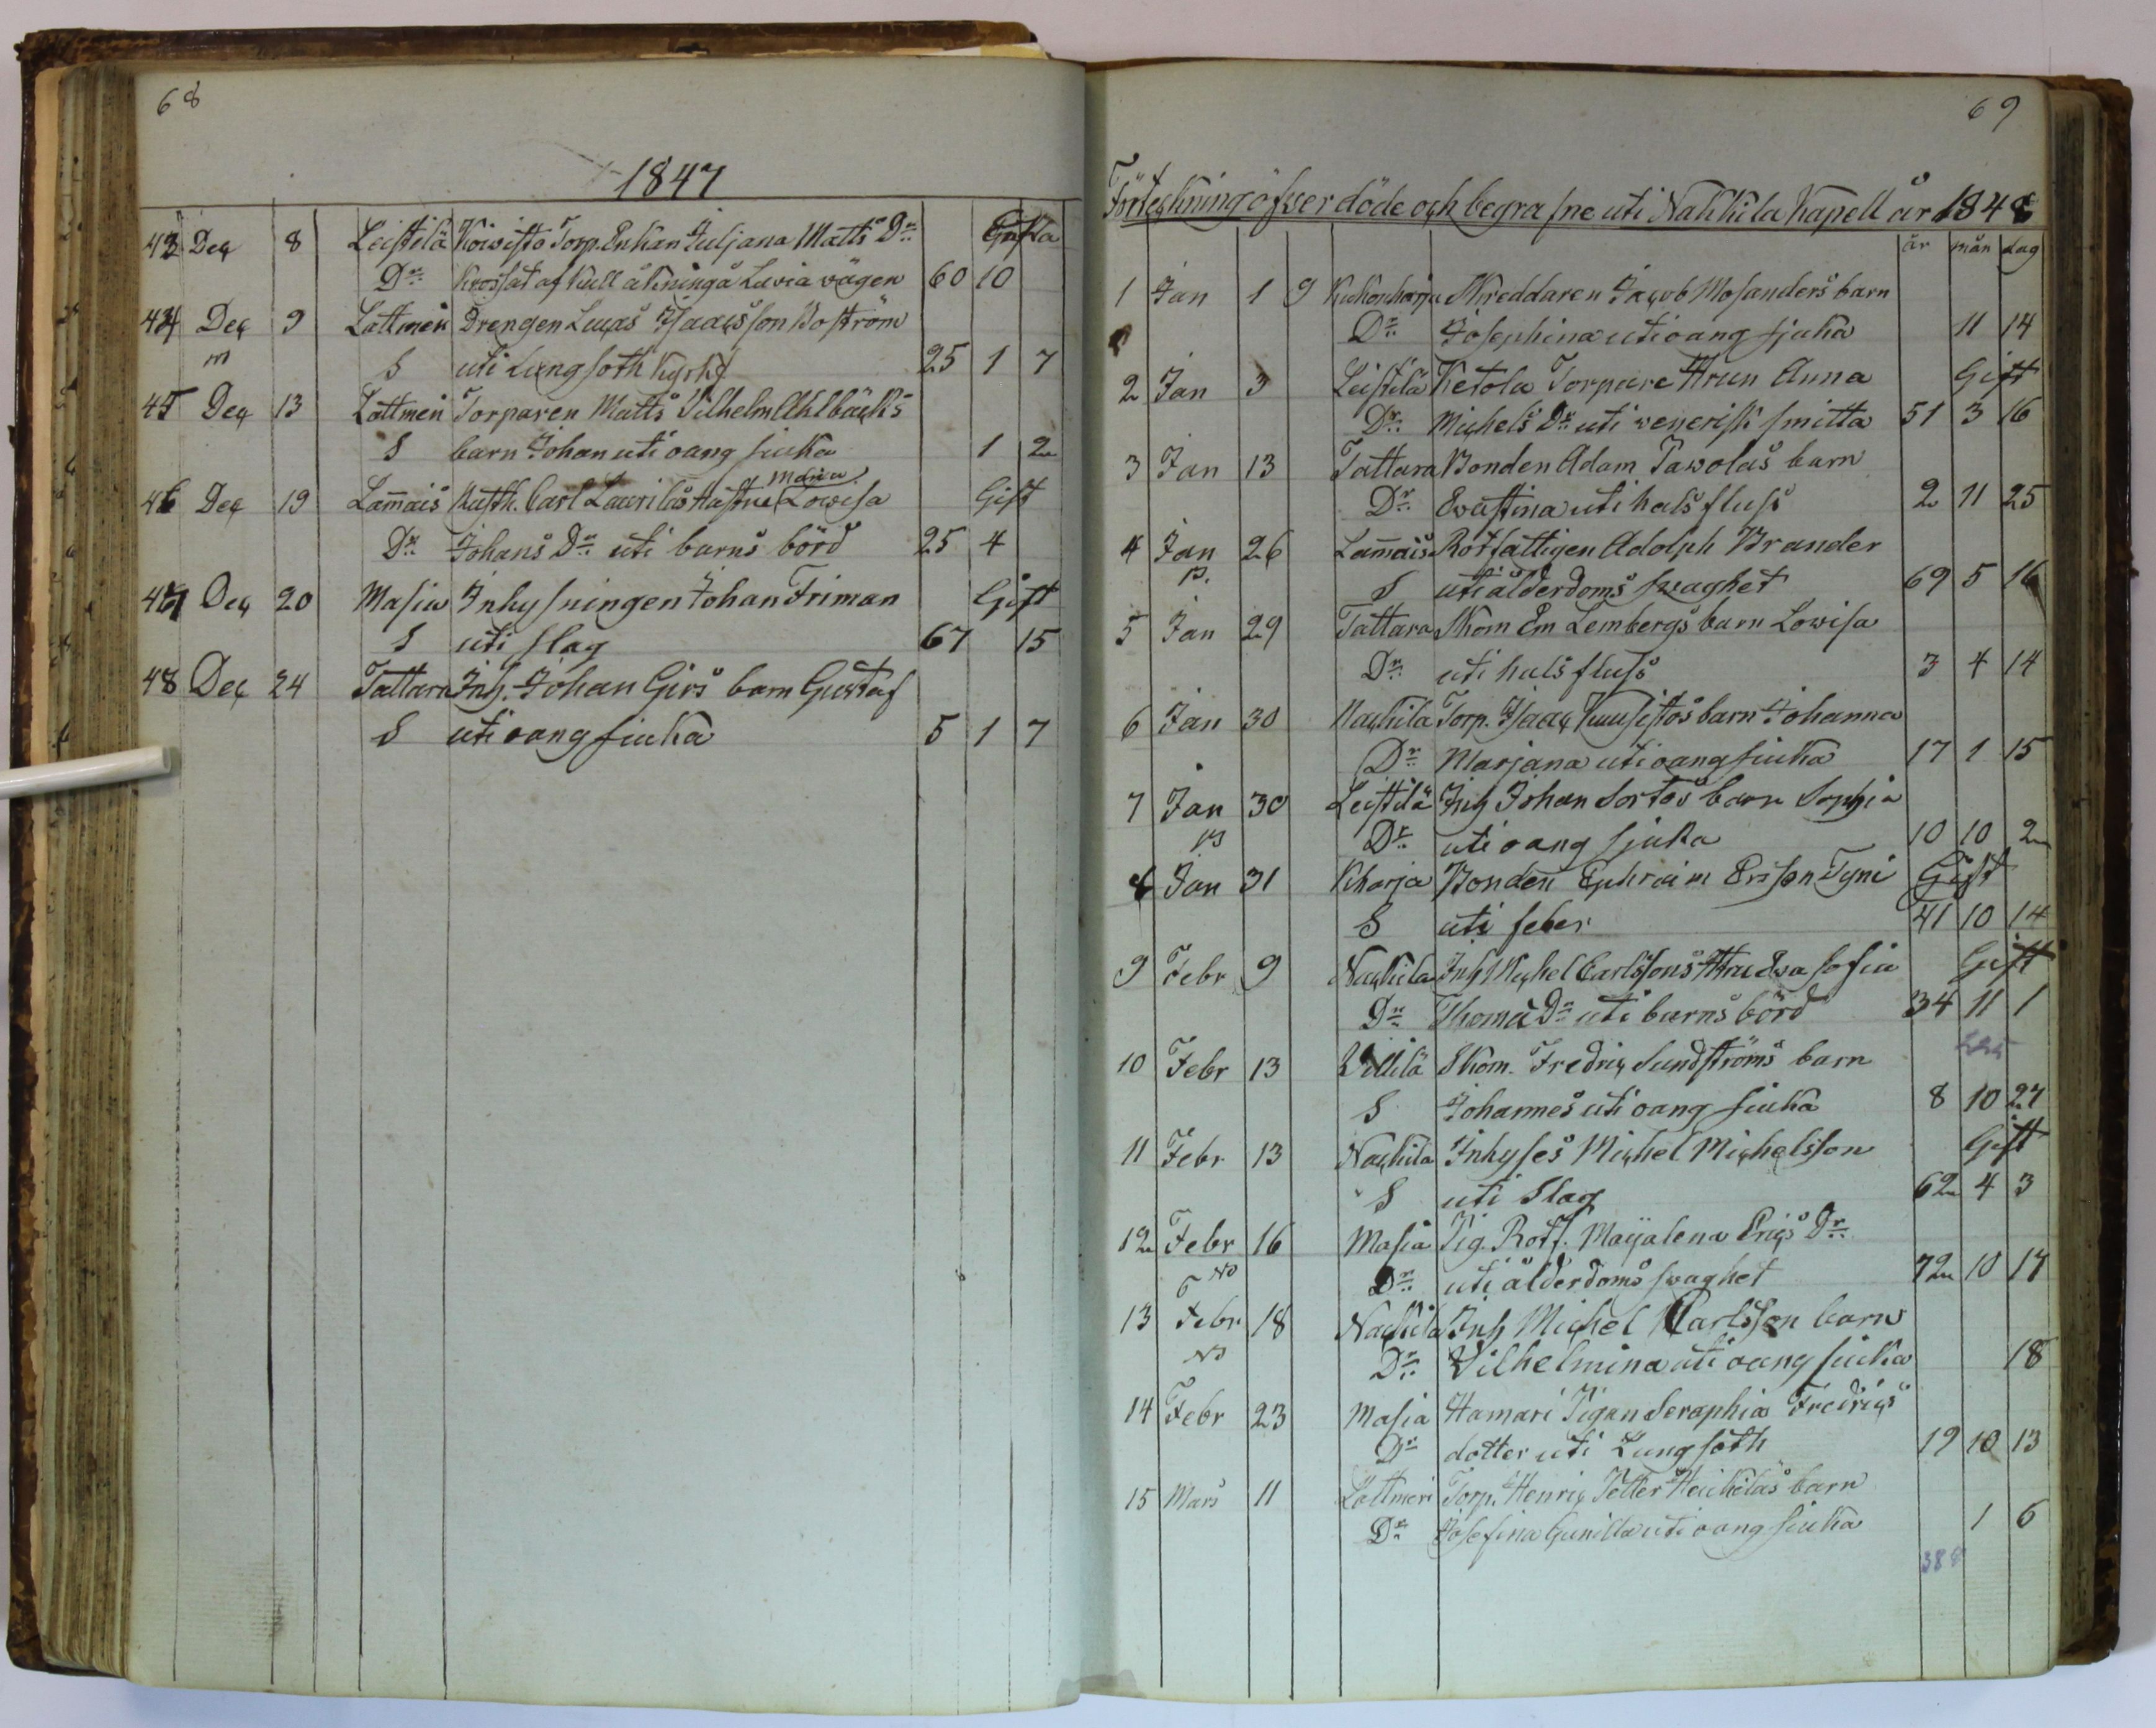 68
1847
43 Dec 8 Leistilä Koivisto Torp. Enkan Juljana Matts Dr Enka
Dr krossat af kull åkning å Luvia vägen 60 10
44 Dec 9 Lattmeri Drengen Lucas Isaacsson Boström
S uti Lungsoth 25 1 7
45 Dec 13 Lattmeri Torparen Matts Vilhelm Ahlbäcks
S barn Johan uti oang siuka 1 2
Maria
46 Dec 19 Lam̅ais Rusth. Carl Laurilas Hustru Lowisa Gift
Dr Johans Dr uti barns börd 25 4
47 Dec 20 Masia Inhysningen Johan Friman Gift
S uti slag 67 15
48 Dec 24 Tattara Inh. Johan Girs barn Gustaf
S uti oang siuka 5 1 7
69
Förteckning öfver döde och begrafne uti Nakkila Kapell år 1848
år mån dag
1 Jan 1 9 Kukonharju Skreddaren Jacob Mosanders barn
Dr Josephina uti oang sjuka 11 14
2 Jan 3 Leistilä Ketola Torpare Hrun Anna Gift
Dr Michels Dr uti venerisk smitta 51 3 16
3 Jan 13 Tattara Bonden Adam Pawolas barn
Dr Evastina uti hals fluss 2 11 25
4 Jan 26 Lam̅ais Rotfattigen Adolph Brander
S uti ålderdoms swaghet 69 5 16
5 Jan 29 Tattara Skom Em Lembergs barn Lowisa
Dr uti hals fluss 3 4 14
6 Jan 30 Nackila Torp. Isaac Kuusistos barn Johanna
Dr Marjana uti oang siuka 17 1 15
7 Jan 30 Leistilä Inh Johan Sortos barn Sophia
Dr uti oang sjuka 10 10 2
8 Jan 31 Kharja Bonden Ephraim Ersson Tyni Gift
S uti feber 41 10 14
9 Febr 9 Nackila Inh Michel Carlssons Hru Eva Sofia Gift
Dr Thoma Dr uti barns börd 34 11 1
10 Febr 13 Villilä Skom. Fredric Sundströms barn
S Johannes uti oang siuka 8 10 27
11 Febr 13 Nackila Inhyses Michel Michelsson Gift
S uti Slag 62 4 3
12 Febr 16 Masia Pig. Rotf. Majjalena Erics Dr
Dr uti ålderdoms swaghet 72 10 17
13 Febr 18 Nackila Inh Michel Carlsson barn
Dr Vilhelmina uti oang siuka 18
14 Febr 23 Masia Hamari Pigan Seraphia Fredrics
Dr dotter uti Lungsoth 19 10 13
15 Mars 11 Lattmeri Torp. Henric Petter Heikiläs barn
Dr Josefina Gunilla uti oang siuka 1 6
388